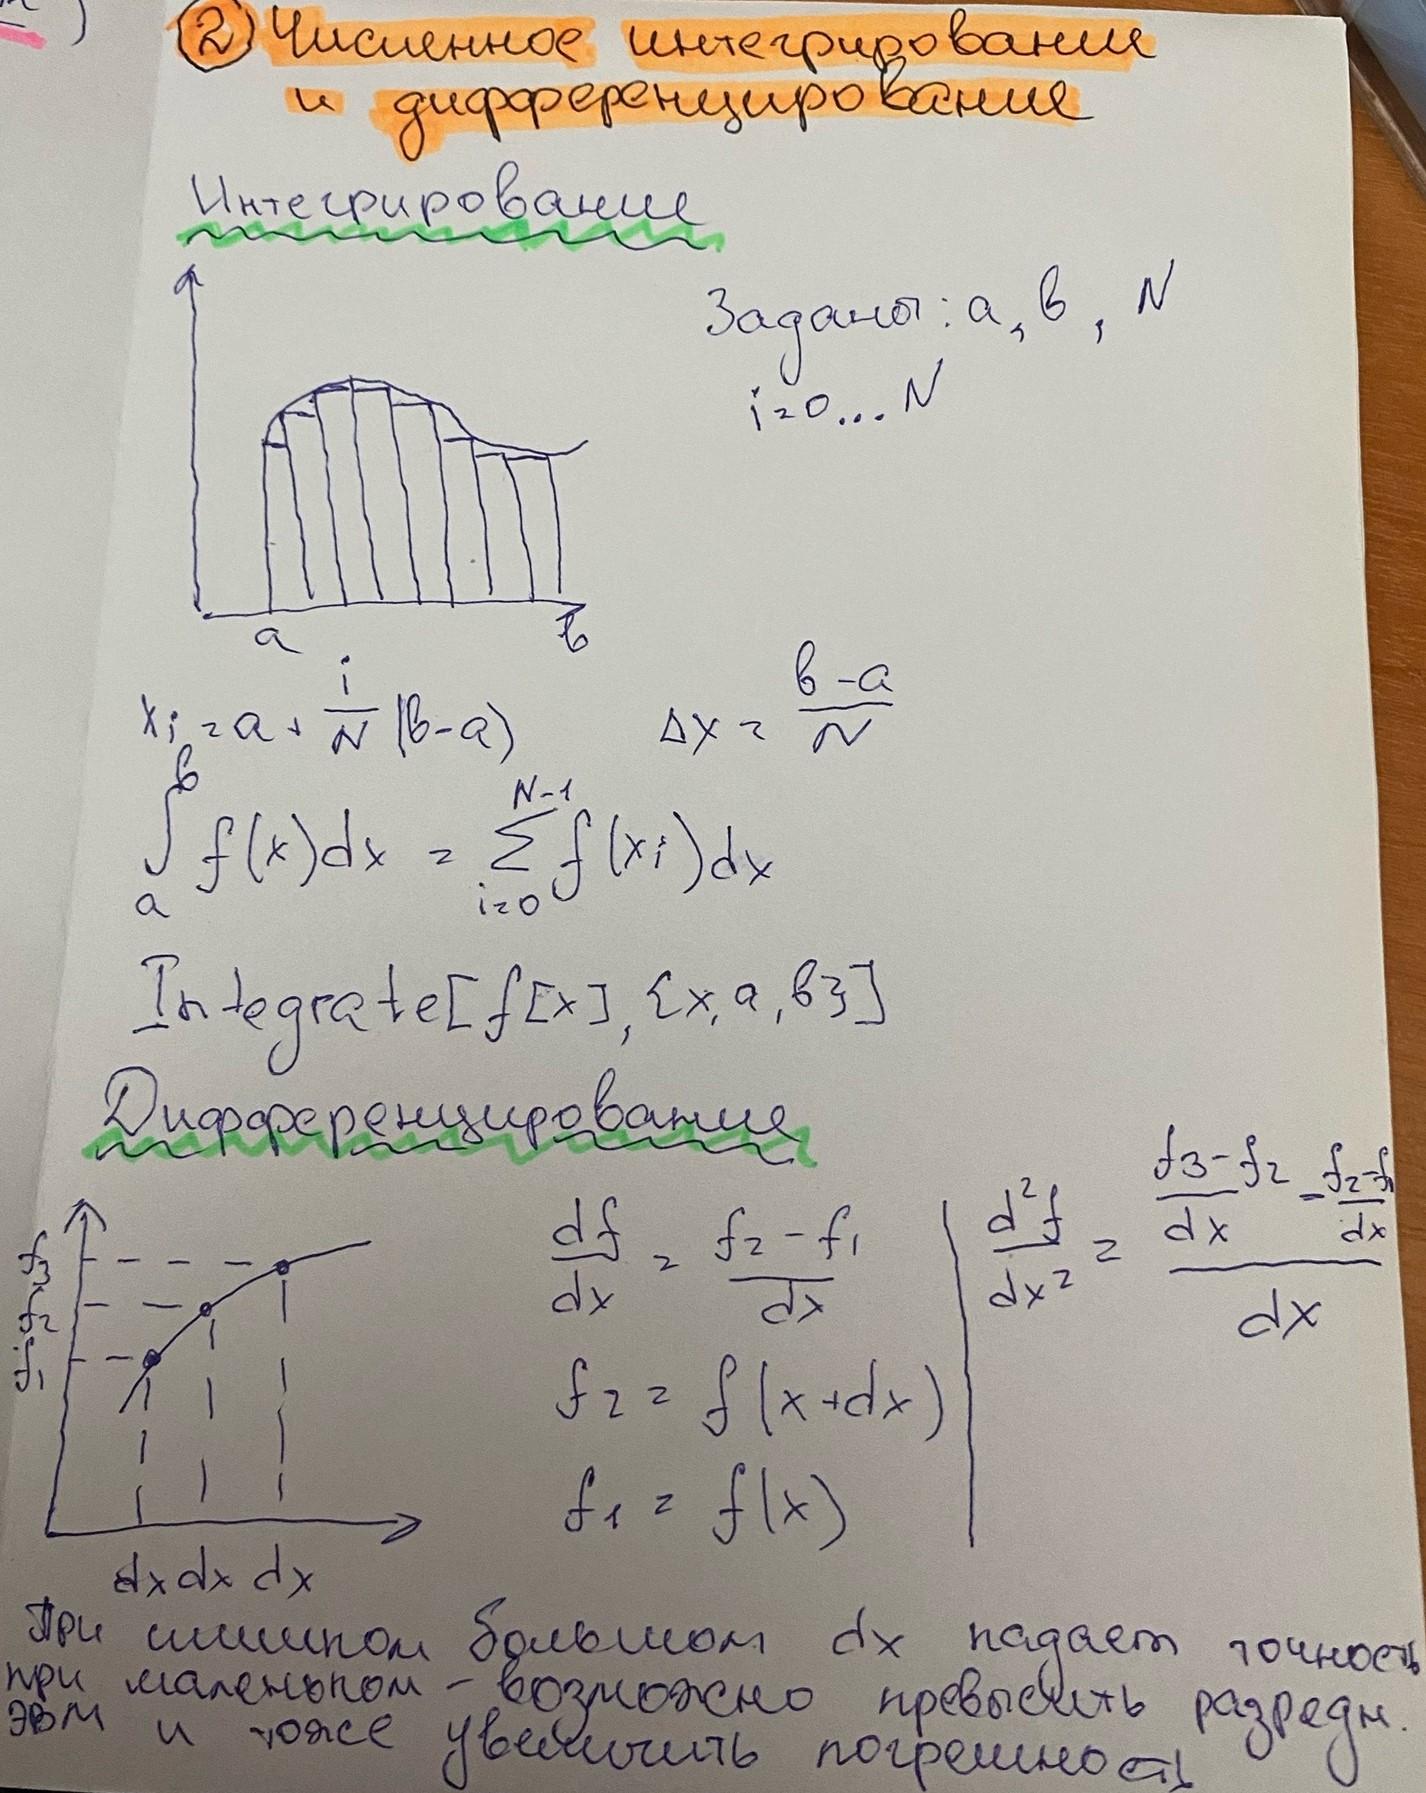 ② Численное интегрирование
и дифференцирование
Интегрирование
Заданы: a, b, N
i=0...N
a
b
xi = a + i/N (b-a)
Δx = (b-a)/N
∫ₐᵇ f(x)dx = Σ_{i=0}^{N-1} f(xi)dx
Integrate[f[x], {x, a, b}]
Дифференцирование
f3
f2
f1
dx dx dx
df/dx = (f2 - f1)/dx
f2 = f(x+dx)
f1 = f(x)
d²f/dx² = ((f3-f2)/dx - (f2-f1)/dx)/dx
При слишком большом dx падает точность
при маленьком - возможно превысить разрядн.
ЭВМ и тоже увеличить погрешность